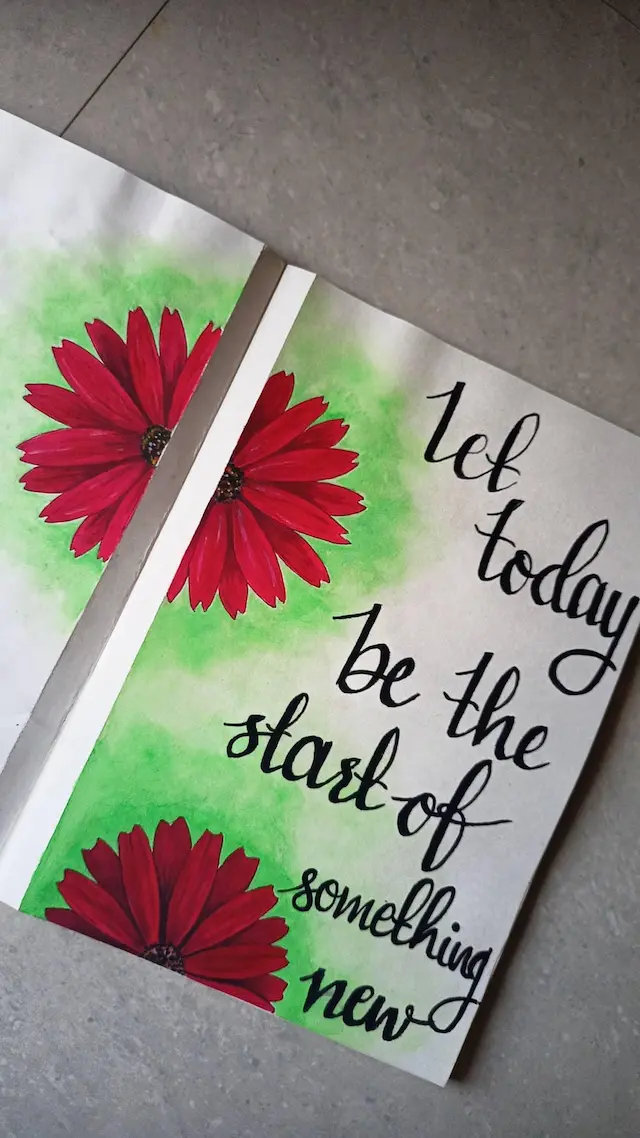 Let
today
be the
start of
something
new